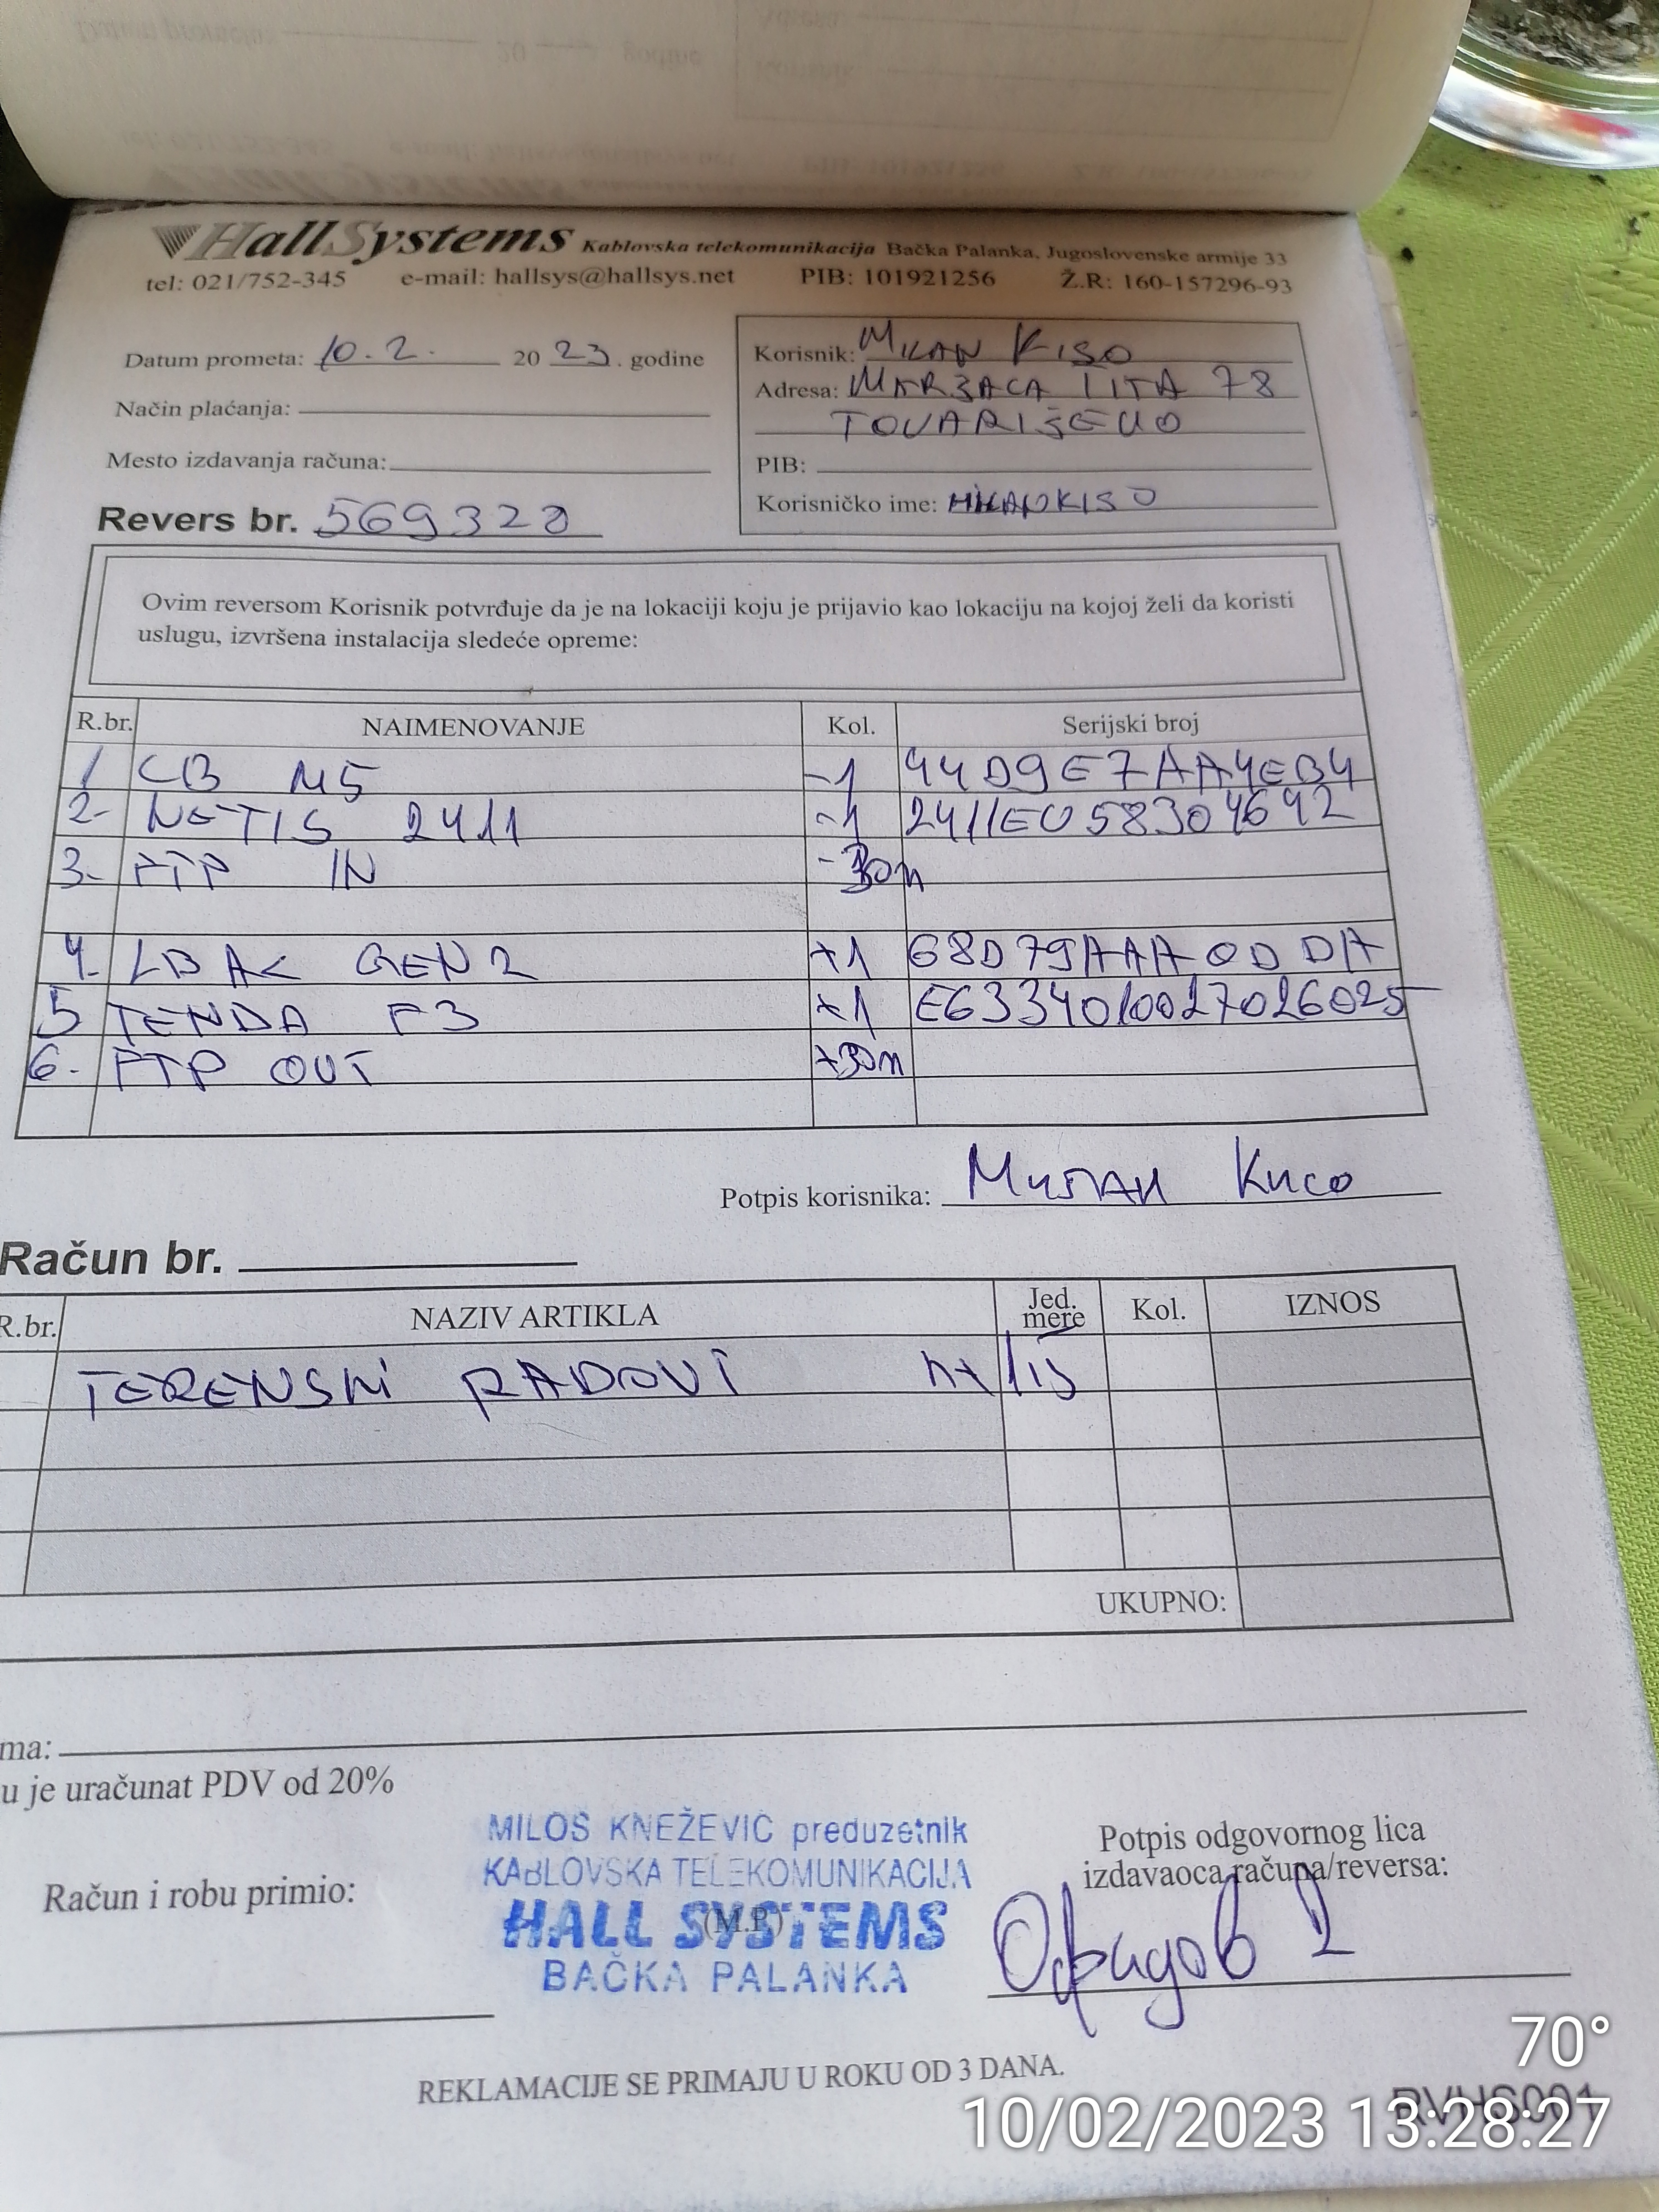 HallSystems Kablovska telekomunikacija Bačka Palanka, Jugoslovenske armije 33
tel: 021/752-345 e-mail: hallsys@hallsys.net PIB: 101921256 Ž.R: 160-157296-93
Datum prometa: 10.2. 20 23. godine
Način plaćanja:
Mesto izdavanja računa:
Revers br. 569320
Korisnik: MILAN KISO
Adresa: MARŠALA TITA 78
TOVARIŠEVO
PIB:
Korisničko ime: MILANKISO
Ovim reversom Korisnik potvrđuje da je na lokaciji koju je prijavio kao lokaciju na kojoj želi da koristi
uslugu, izvršena instalacija sledeće opreme:
R.br. NAIMENOVANJE Kol. Serijski broj
1 CB M5 -1 44D9E7AA4EB4
2- NETIS 2411 -1 2411EU58304692
3- FTP IN -30m
4- LB AC GEN2 +1 68D79AAA0DDA
5 TENDA F3 +1 E6334010027026025
6- FTP OUT +30m
Potpis korisnika: Милан Кисо
Račun br.
R.br. NAZIV ARTIKLA Jed. mere Kol. IZNOS
TERENSKI RADOVI
UKUPNO:
ma:
u je uračunat PDV od 20%
MILOŠ KNEŽEVIĆ preduzetnik
KABLOVSKA TELEKOMUNIKACIJA
HALL SYSTEMS
(M.P.)
BAČKA PALANKA
Račun i robu primio:
Potpis odgovornog lica
izdavaoca računa/reversa:
REKLAMACIJE SE PRIMAJU U ROKU OD 3 DANA.
RVHS001
70°
10/02/2023 13:28:27